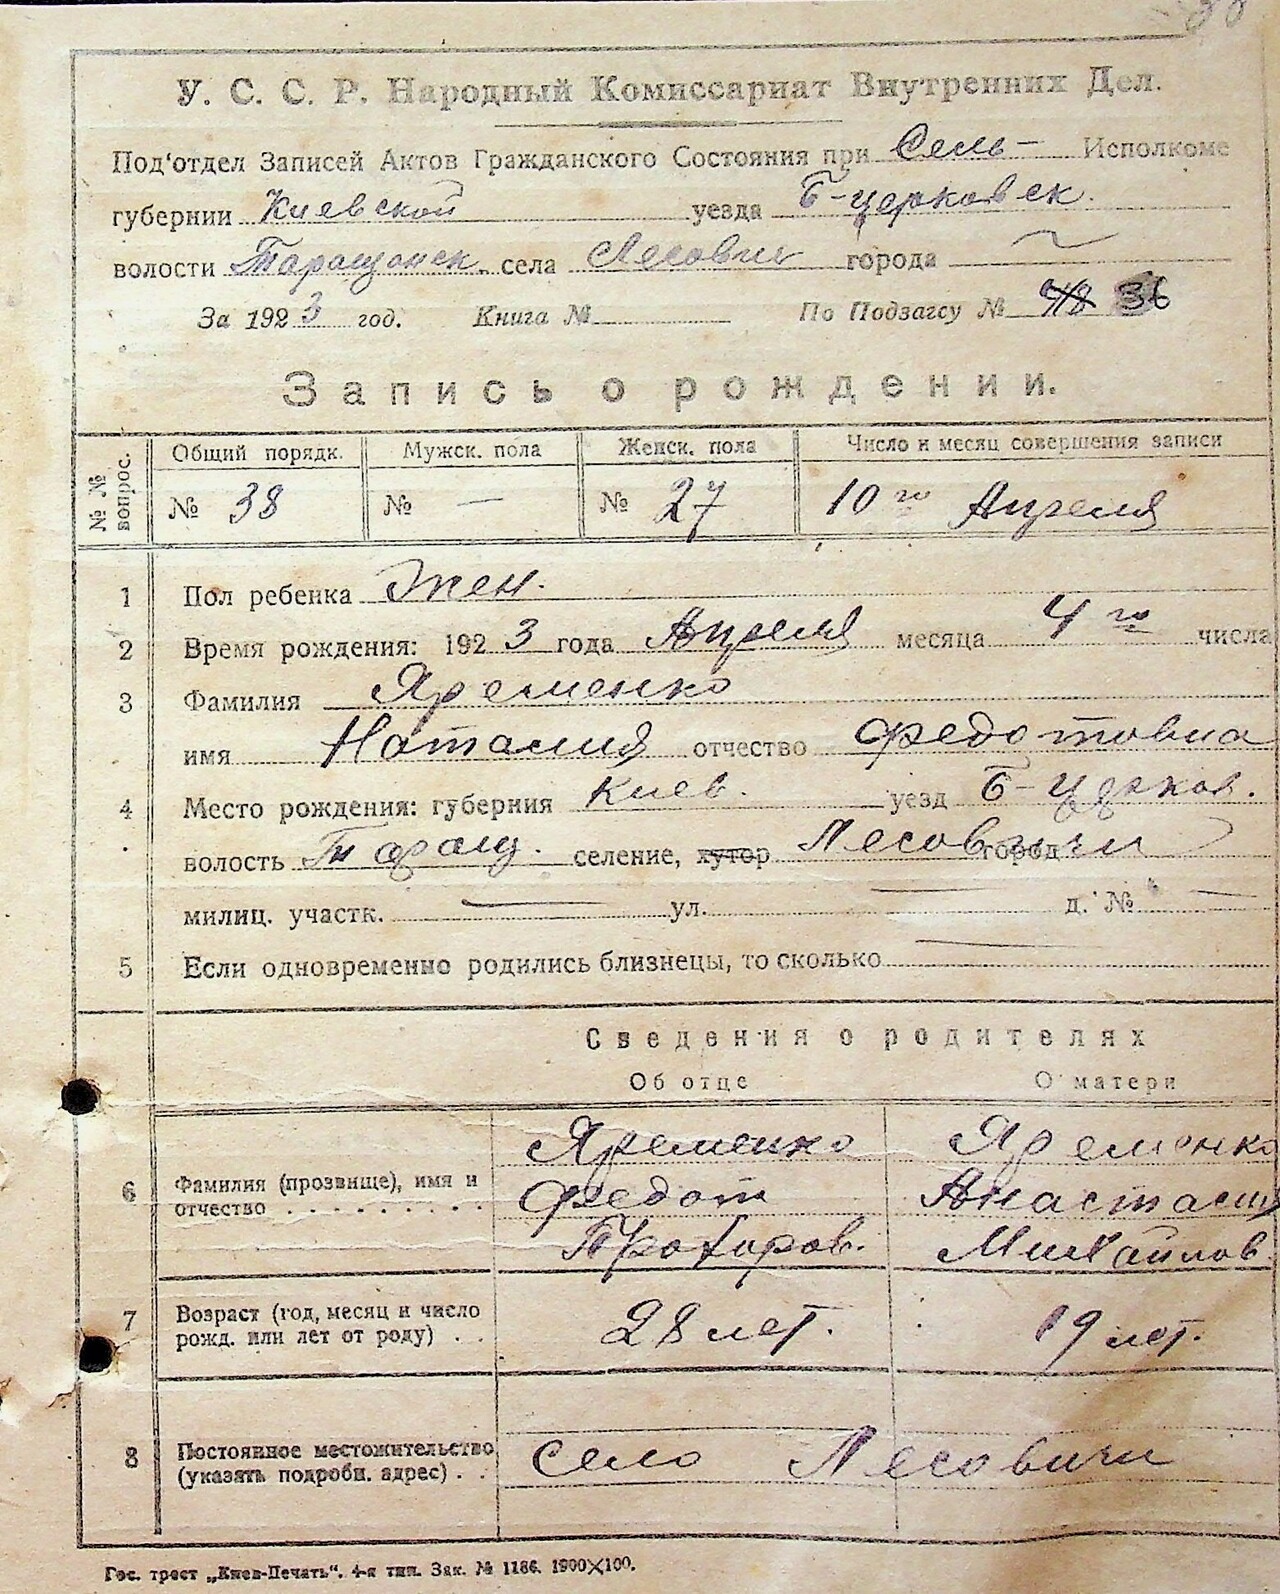 У. С. С. Р. Народный Комиссариат Внутренних Дел.
Под'отдел Записей Актов Гражданского Состояния при Сель- Исполкоме
губернии Киевской уезда Б-церковск.
волости Таращанск. села Лесовичи города
За 1923 год. Книга № По Подзагсу № 36
Запись о рождении.
№ № вопрос. Общий порядк. Мужск. пола Женск. пола Число и месяц совершения записи
№ 38 № — № 27 10го Апреля
1 Пол ребенка Жен.
2 Время рождения: 1923 года Апреля месяца 4го числа
3 Фамилия Яременко
имя Наталия отчество Федотовна
4 Место рождения: губерния Киев. уезд Б-церков.
волость Таращ. селение, хутор Лесовичи город
милиц. участк. — ул. — д. № —
5 Если одновременно родились близнецы, то сколько —
Сведения о родителях
Об отце О матери
Яременко Яременко
6 Фамилия (прозвище), имя и отчество . . . . . . . . . Федот Анастасия
Прохоров. Михайлов.
7 Возраст (год, месяц и число
рожд. или лет от роду) . . 28 лет. 19 лет.
8 Постоянное местожительство
(указать подробн. адрес) . . село Лесовичи
Гос. трест „Киев-Печать“. 4-я тип. Зак. № 1186. 1900×100.